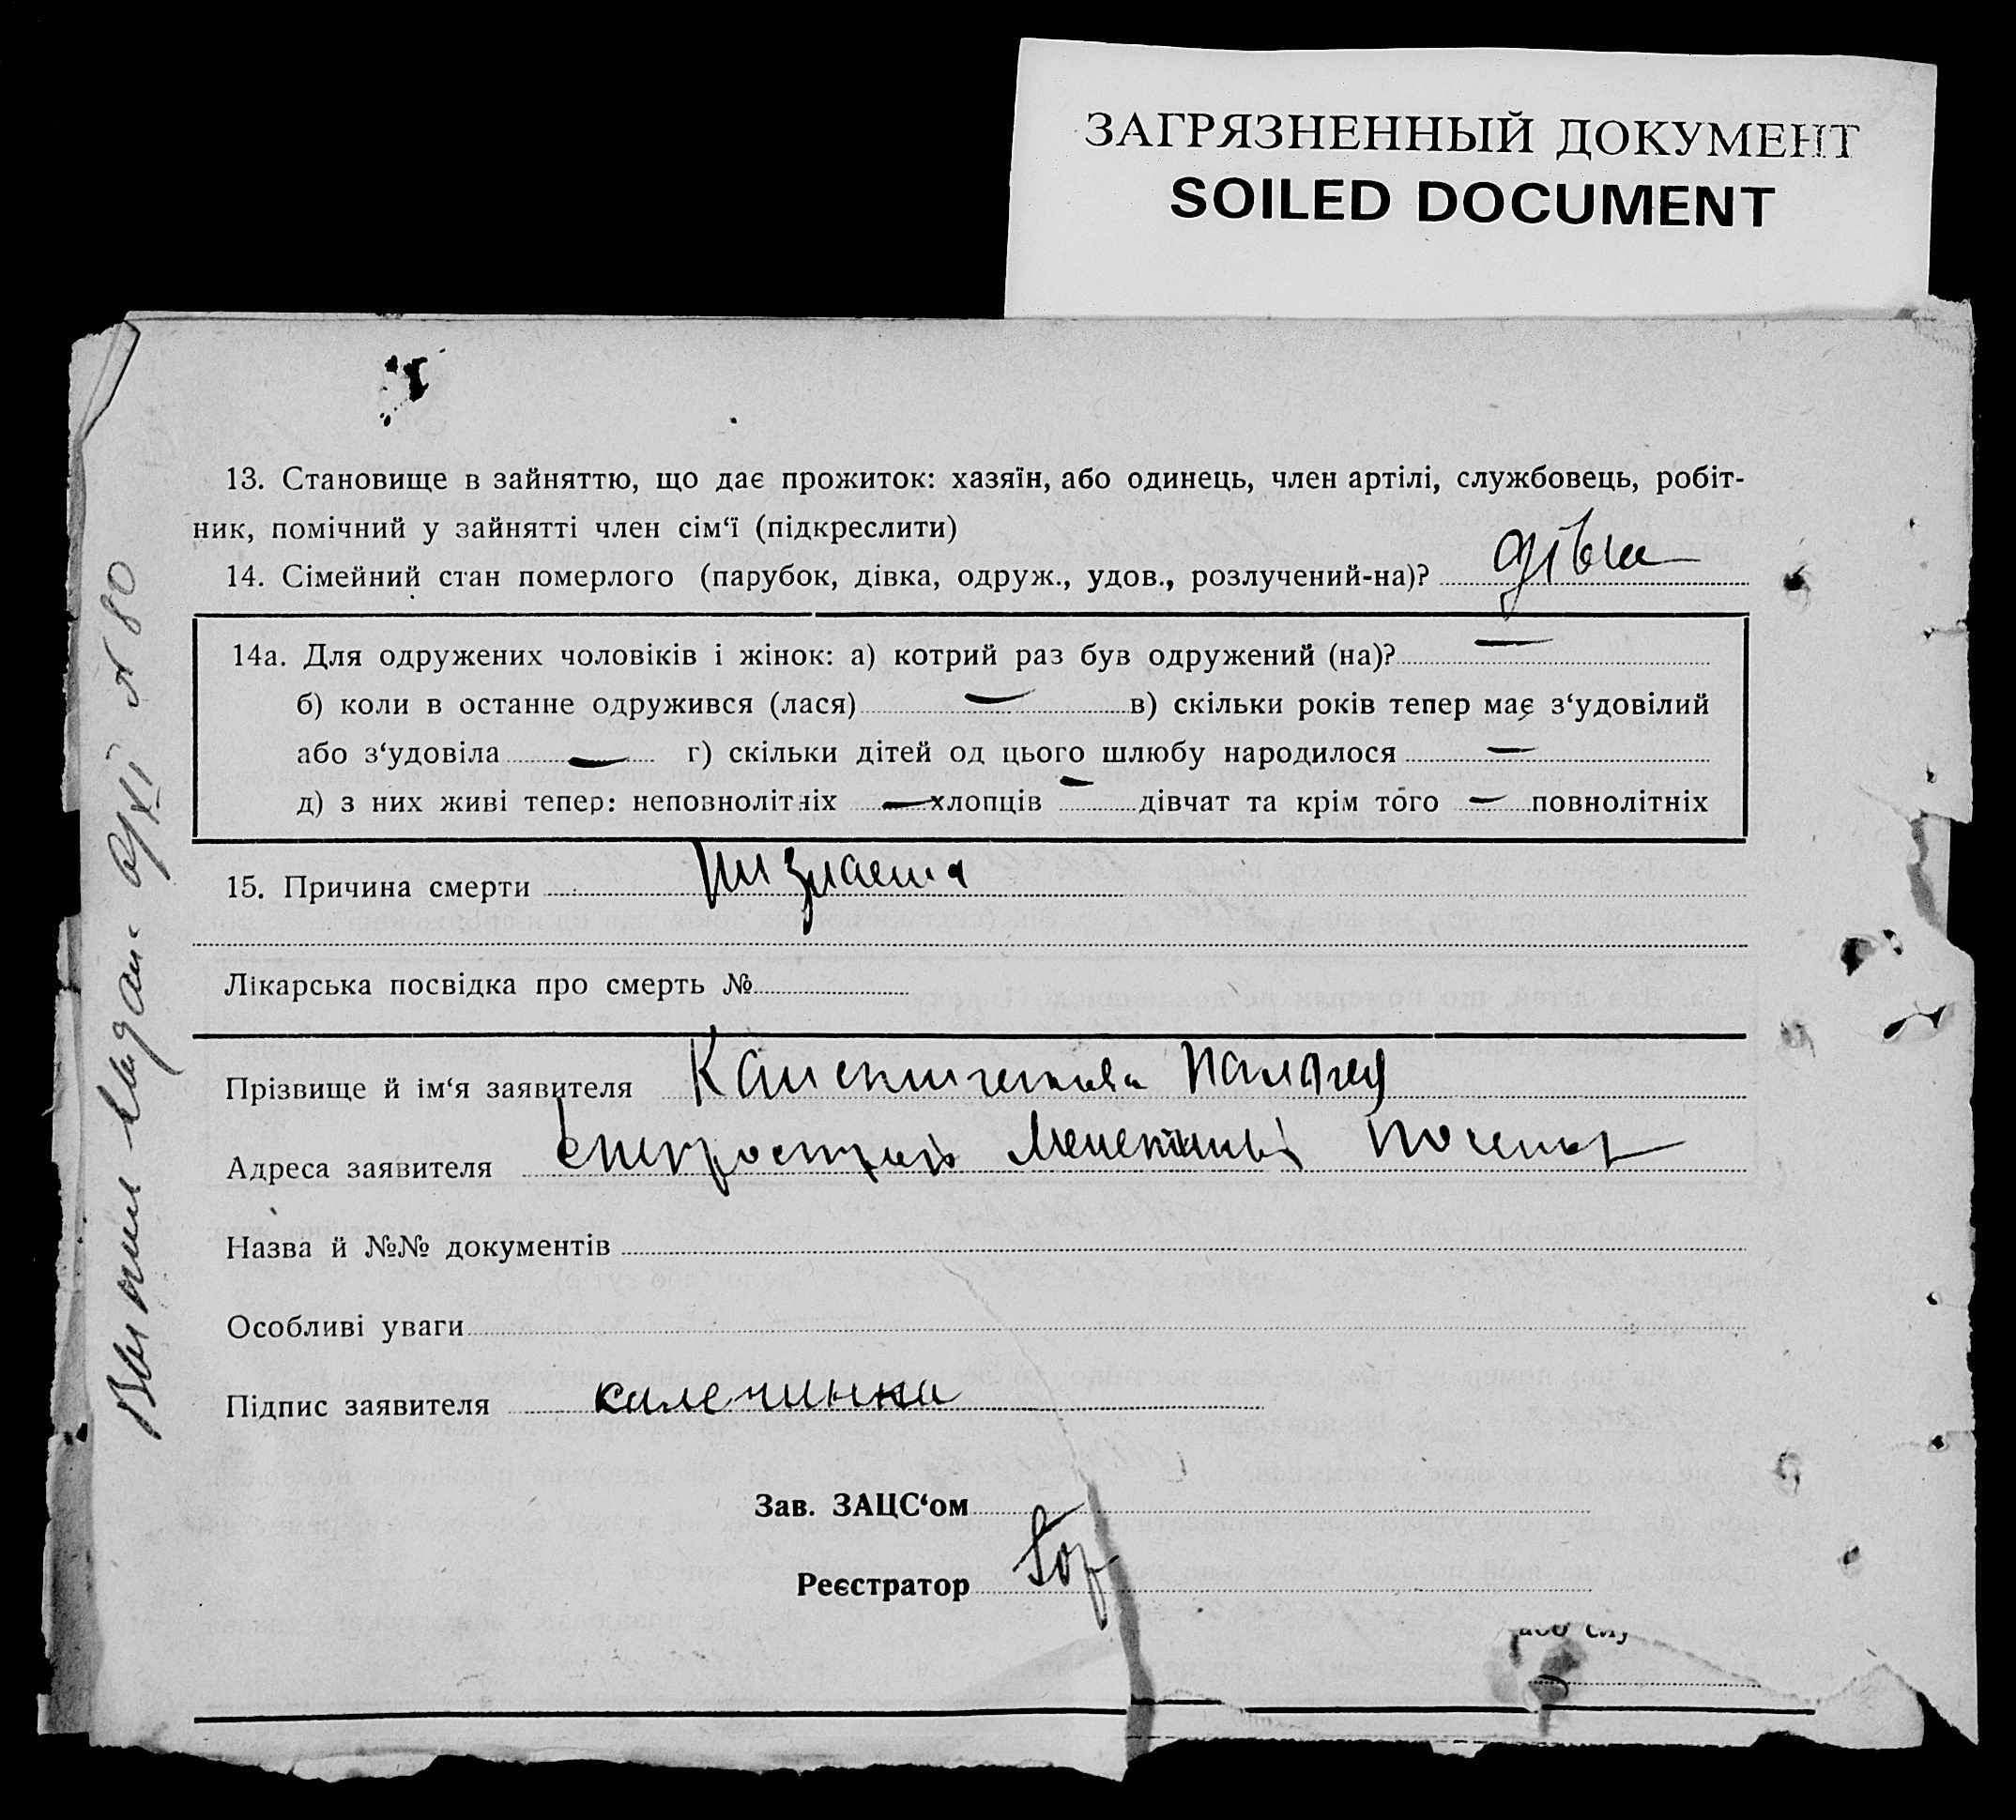 ЗАГРЯЗНЕННЫЙ ДОКУМЕНТ
SOILED DOCUMENT
13. Становище в зайняттю, що дає прожиток: хазяїн, або одинець, член артілі, службовець, робіт-
ник, помічний у зайнятті член сім‘ї (підкреслити)
14. Сімейний стан померлого (парубок, дівка, одруж., удов., розлучений-на)? дівка
14а. Для одружених чоловіків і жінок: а) котрий раз був одружений (на)? —
б) коли в останне одружився (лася) — в) скільки років тепер має з‘удовілий
або з‘удовіла — г) скільки дітей од цього шлюбу народилося —
д) з них живі тепер: неповнолітніх — хлопців — дівчат та крім того — повнолітніх
15. Причина смерти
Лікарська посвідка про смерть №
Прізвище й ім‘я заявителя
Адреса заявителя
Назва й №№ документів
Особливі уваги
Підпис заявителя
Зав. ЗАЦС‘ом
Реєстратор
або слу
№ 80